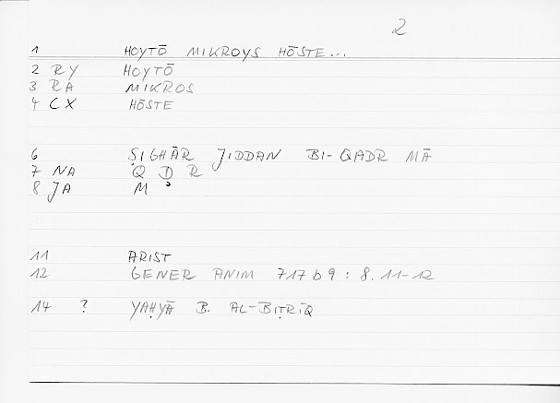 2
1 HOYTŌ MIKROYS HŌSTE...
2 RY HOYTŌ
3 RA MIKROS
4 CX HŌSTE
6 ṢIGHĀR JIDDAN BI-QADR MĀ
7 NA Q D R
8 JA M
11 ARIST
12 GENER ANIM 717b9 : 8.11-12
14 ? YAḤYĀ B. AL-BIṬRĪQ